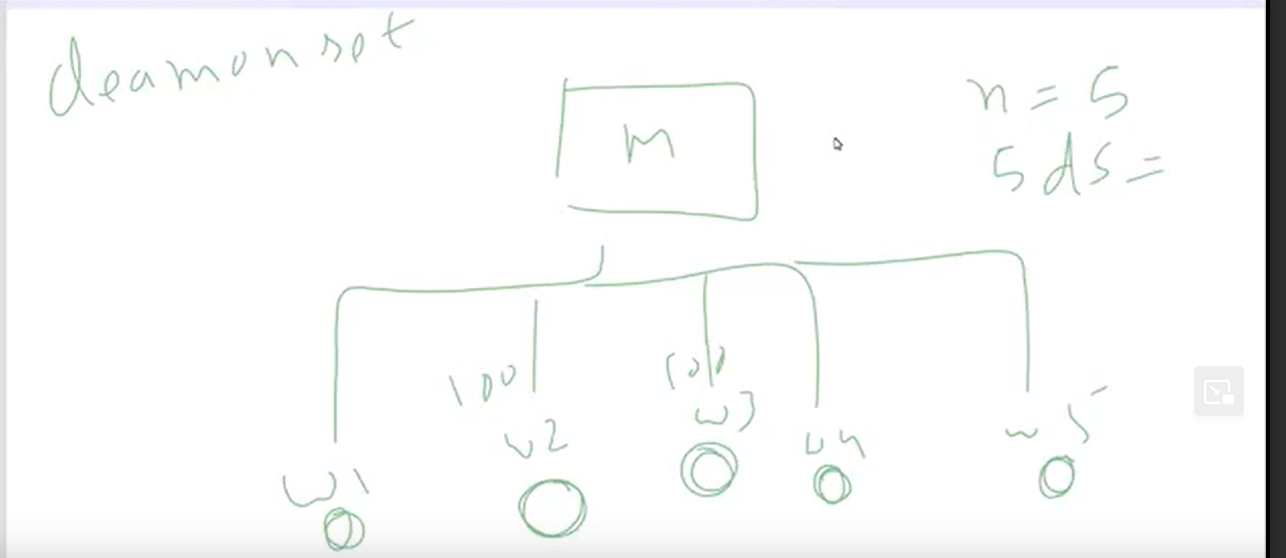 deamonset
n = 5
M
5 ds =
100
100
w3
w2
w4
w5
w1